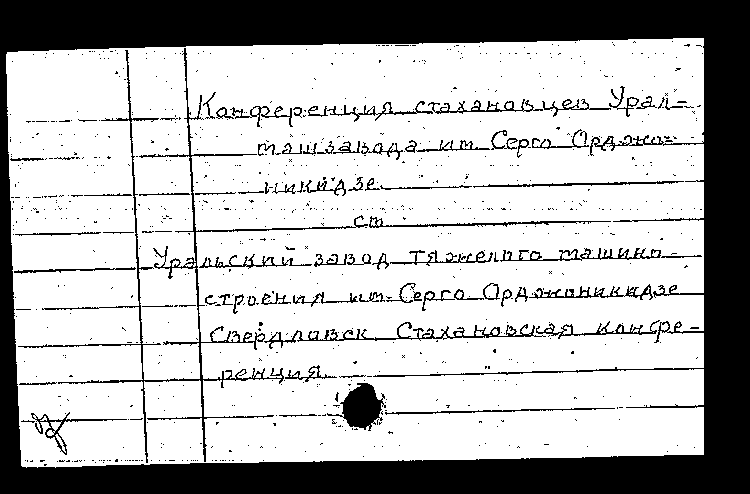 Конференция стахановцев Урал=
машзавода им. Серго Орджо=
никидзе.
см
Уральский завод тяжелого машино-
строения им. Серго Орджоникидзе
Свердловск. Стахановская конфе-
ренция.